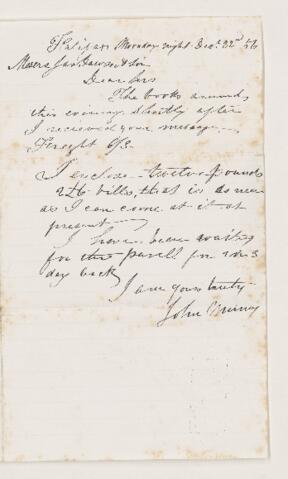 Halifax Monday night Decr 22nd 56
Messrs Jas Dawson & Son
Dear Sirs
The books arrived
this evening shortly after
I received your message
Freight 6/3
I enclose twelve pounds
2/6 bills, that is as near
as I can come at it at
present
I have been waiting
for this parcell for 2 or 3
day back
I am yours truly
John